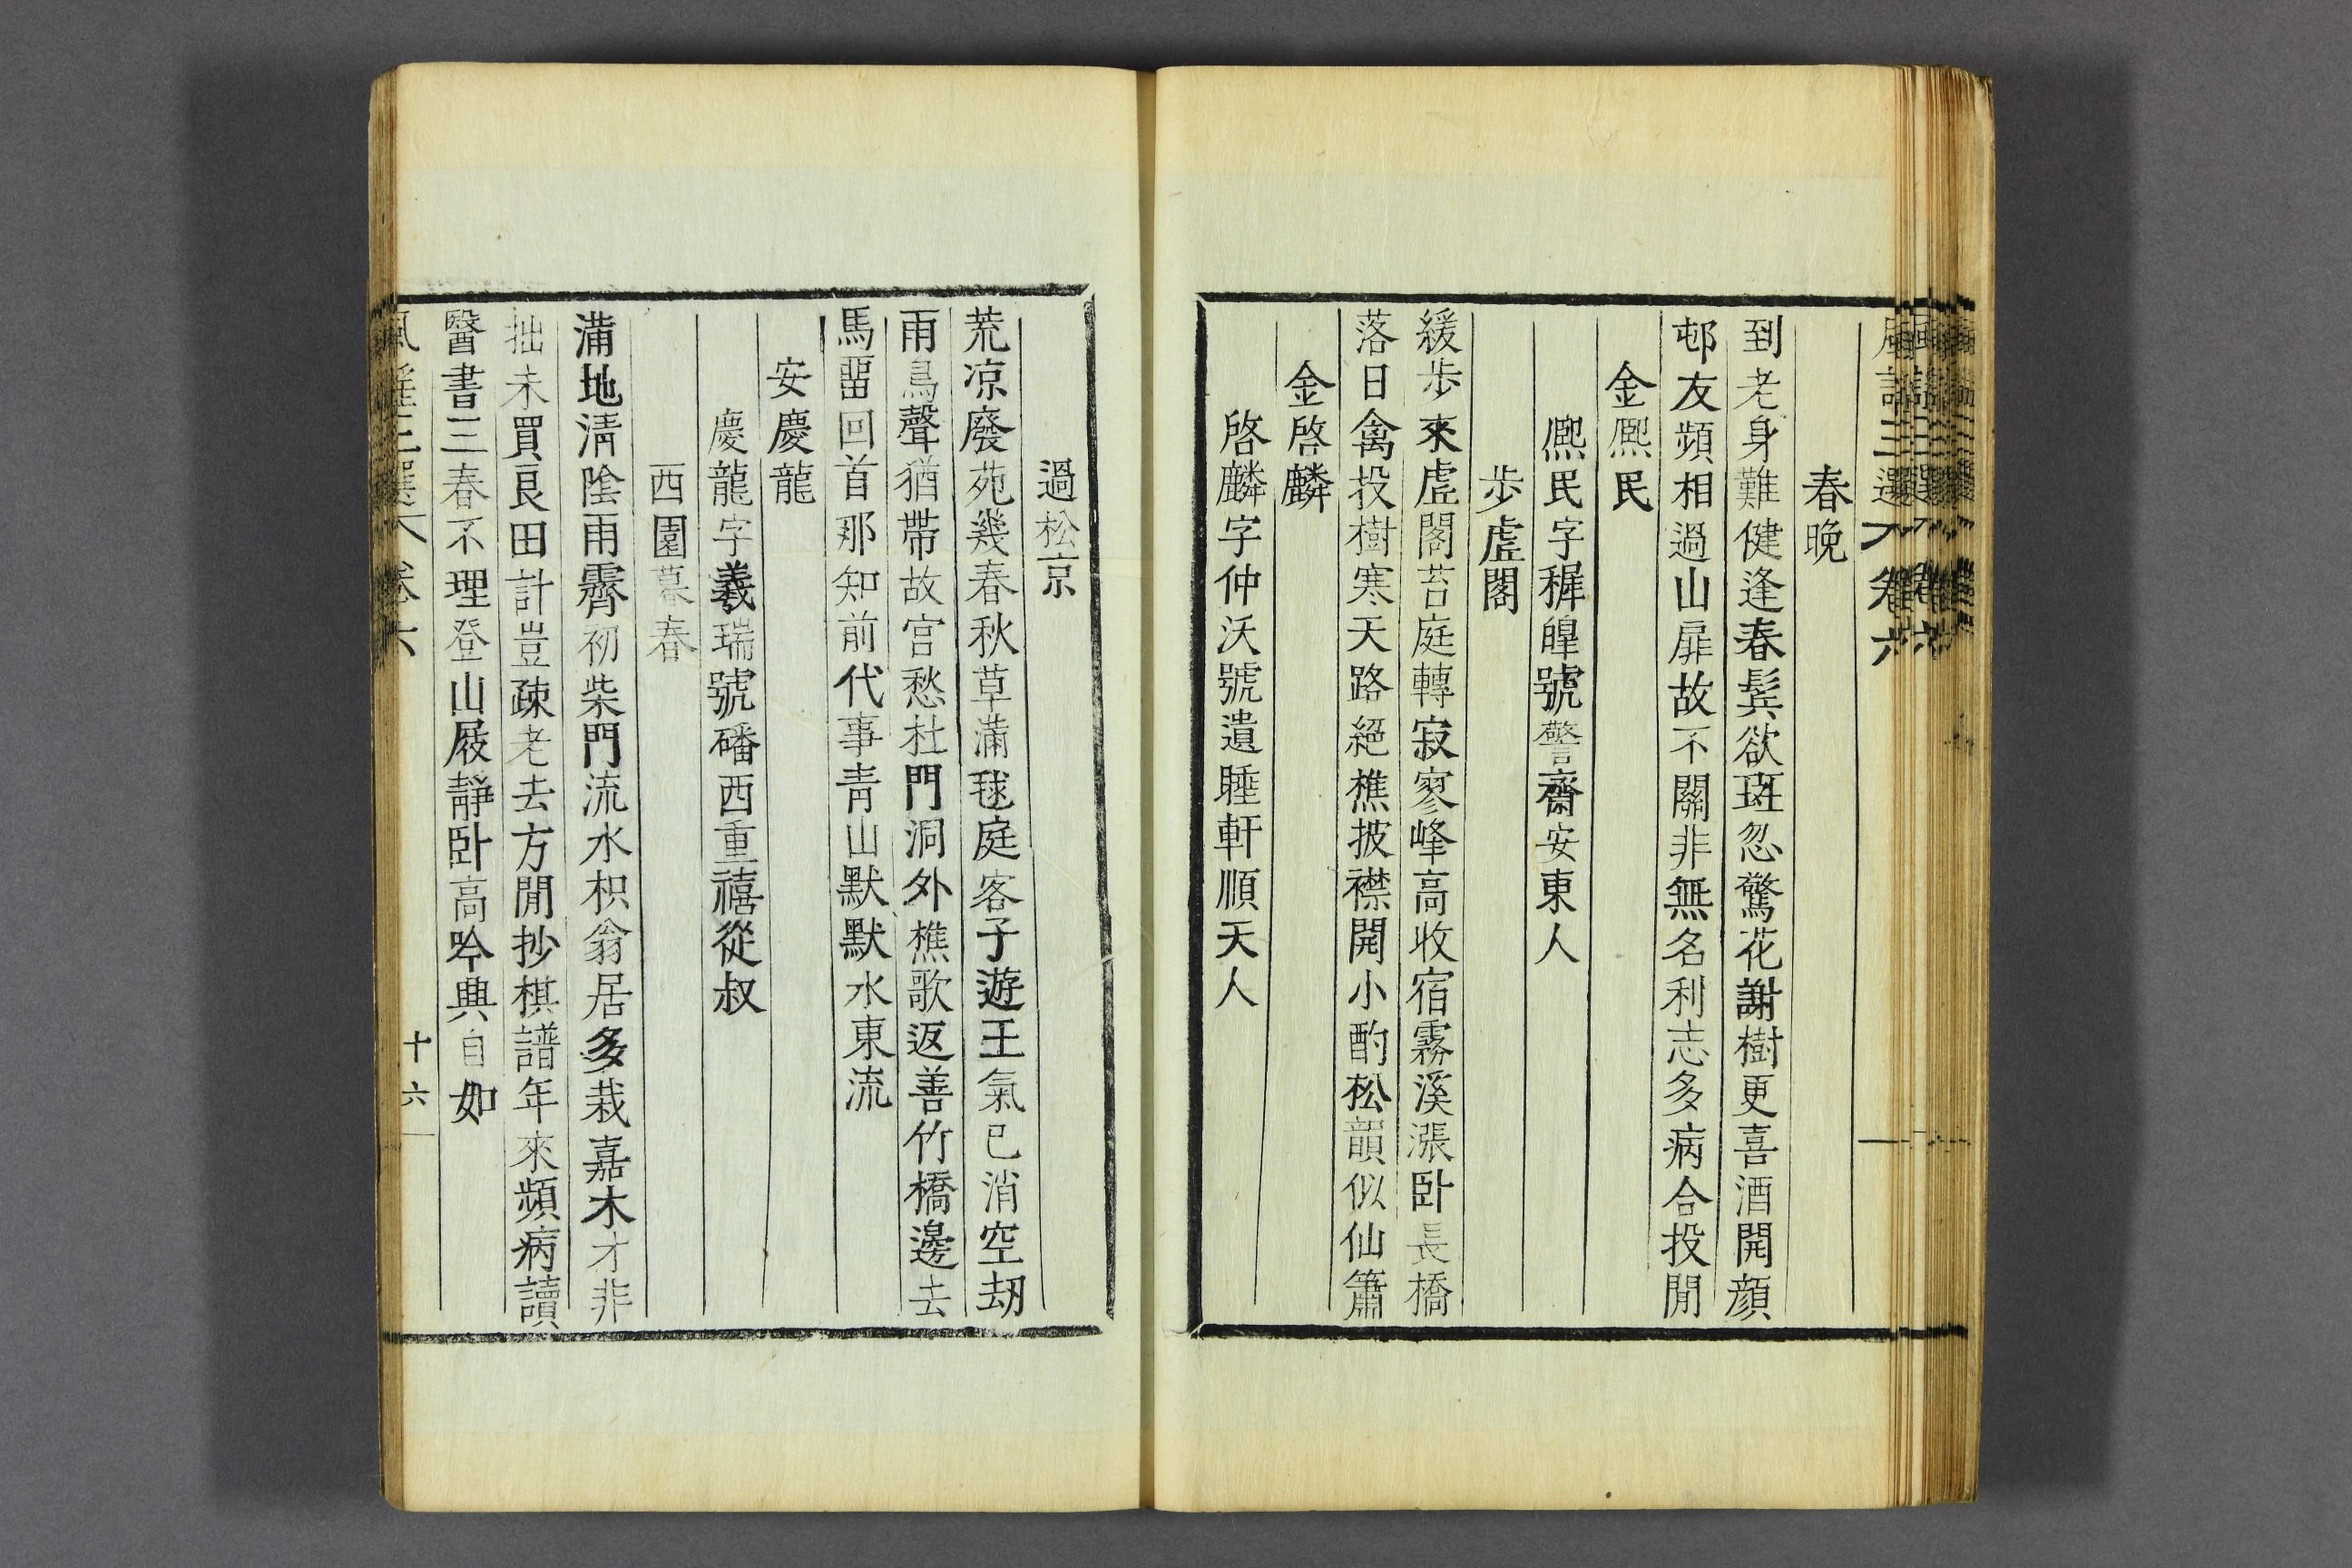 風謠三選 卷六
春晚
到老身難健逢春鬂欲斑忽驚花謝樹更喜酒開顔
邨友頻相過山扉故不關非無名利志多病合投閒
金熈民
熈民字穉皥號警齋安東人
步虛閣
緩步來虛閣苔庭轉寂寥峰高收宿霧溪漲卧長橋
落日禽投樹寒天路絕樵披襟開小酌松韻似仙簫
金啓麟
啓麟字仲沃號遺睡軒順天人
過松京
荒凉廢苑幾春秋草滿毬庭客子遊王氣已消空刼
雨鳥聲猶帶故宮愁杜門洞外樵歌返善竹橋邊去
馬畱回首那知前代事靑山默默水東流
安慶龍
慶龍字羲瑞號磻西重禧從叔
西園暮春
滿地淸陰雨霽初柴門流水枳翁居多栽嘉木才非
拙未買良田計豈疎老去方閒抄棋譜年來頻病讀
醫書三春不理登山屐靜卧高吟興自如
風謠三選 卷六 十六